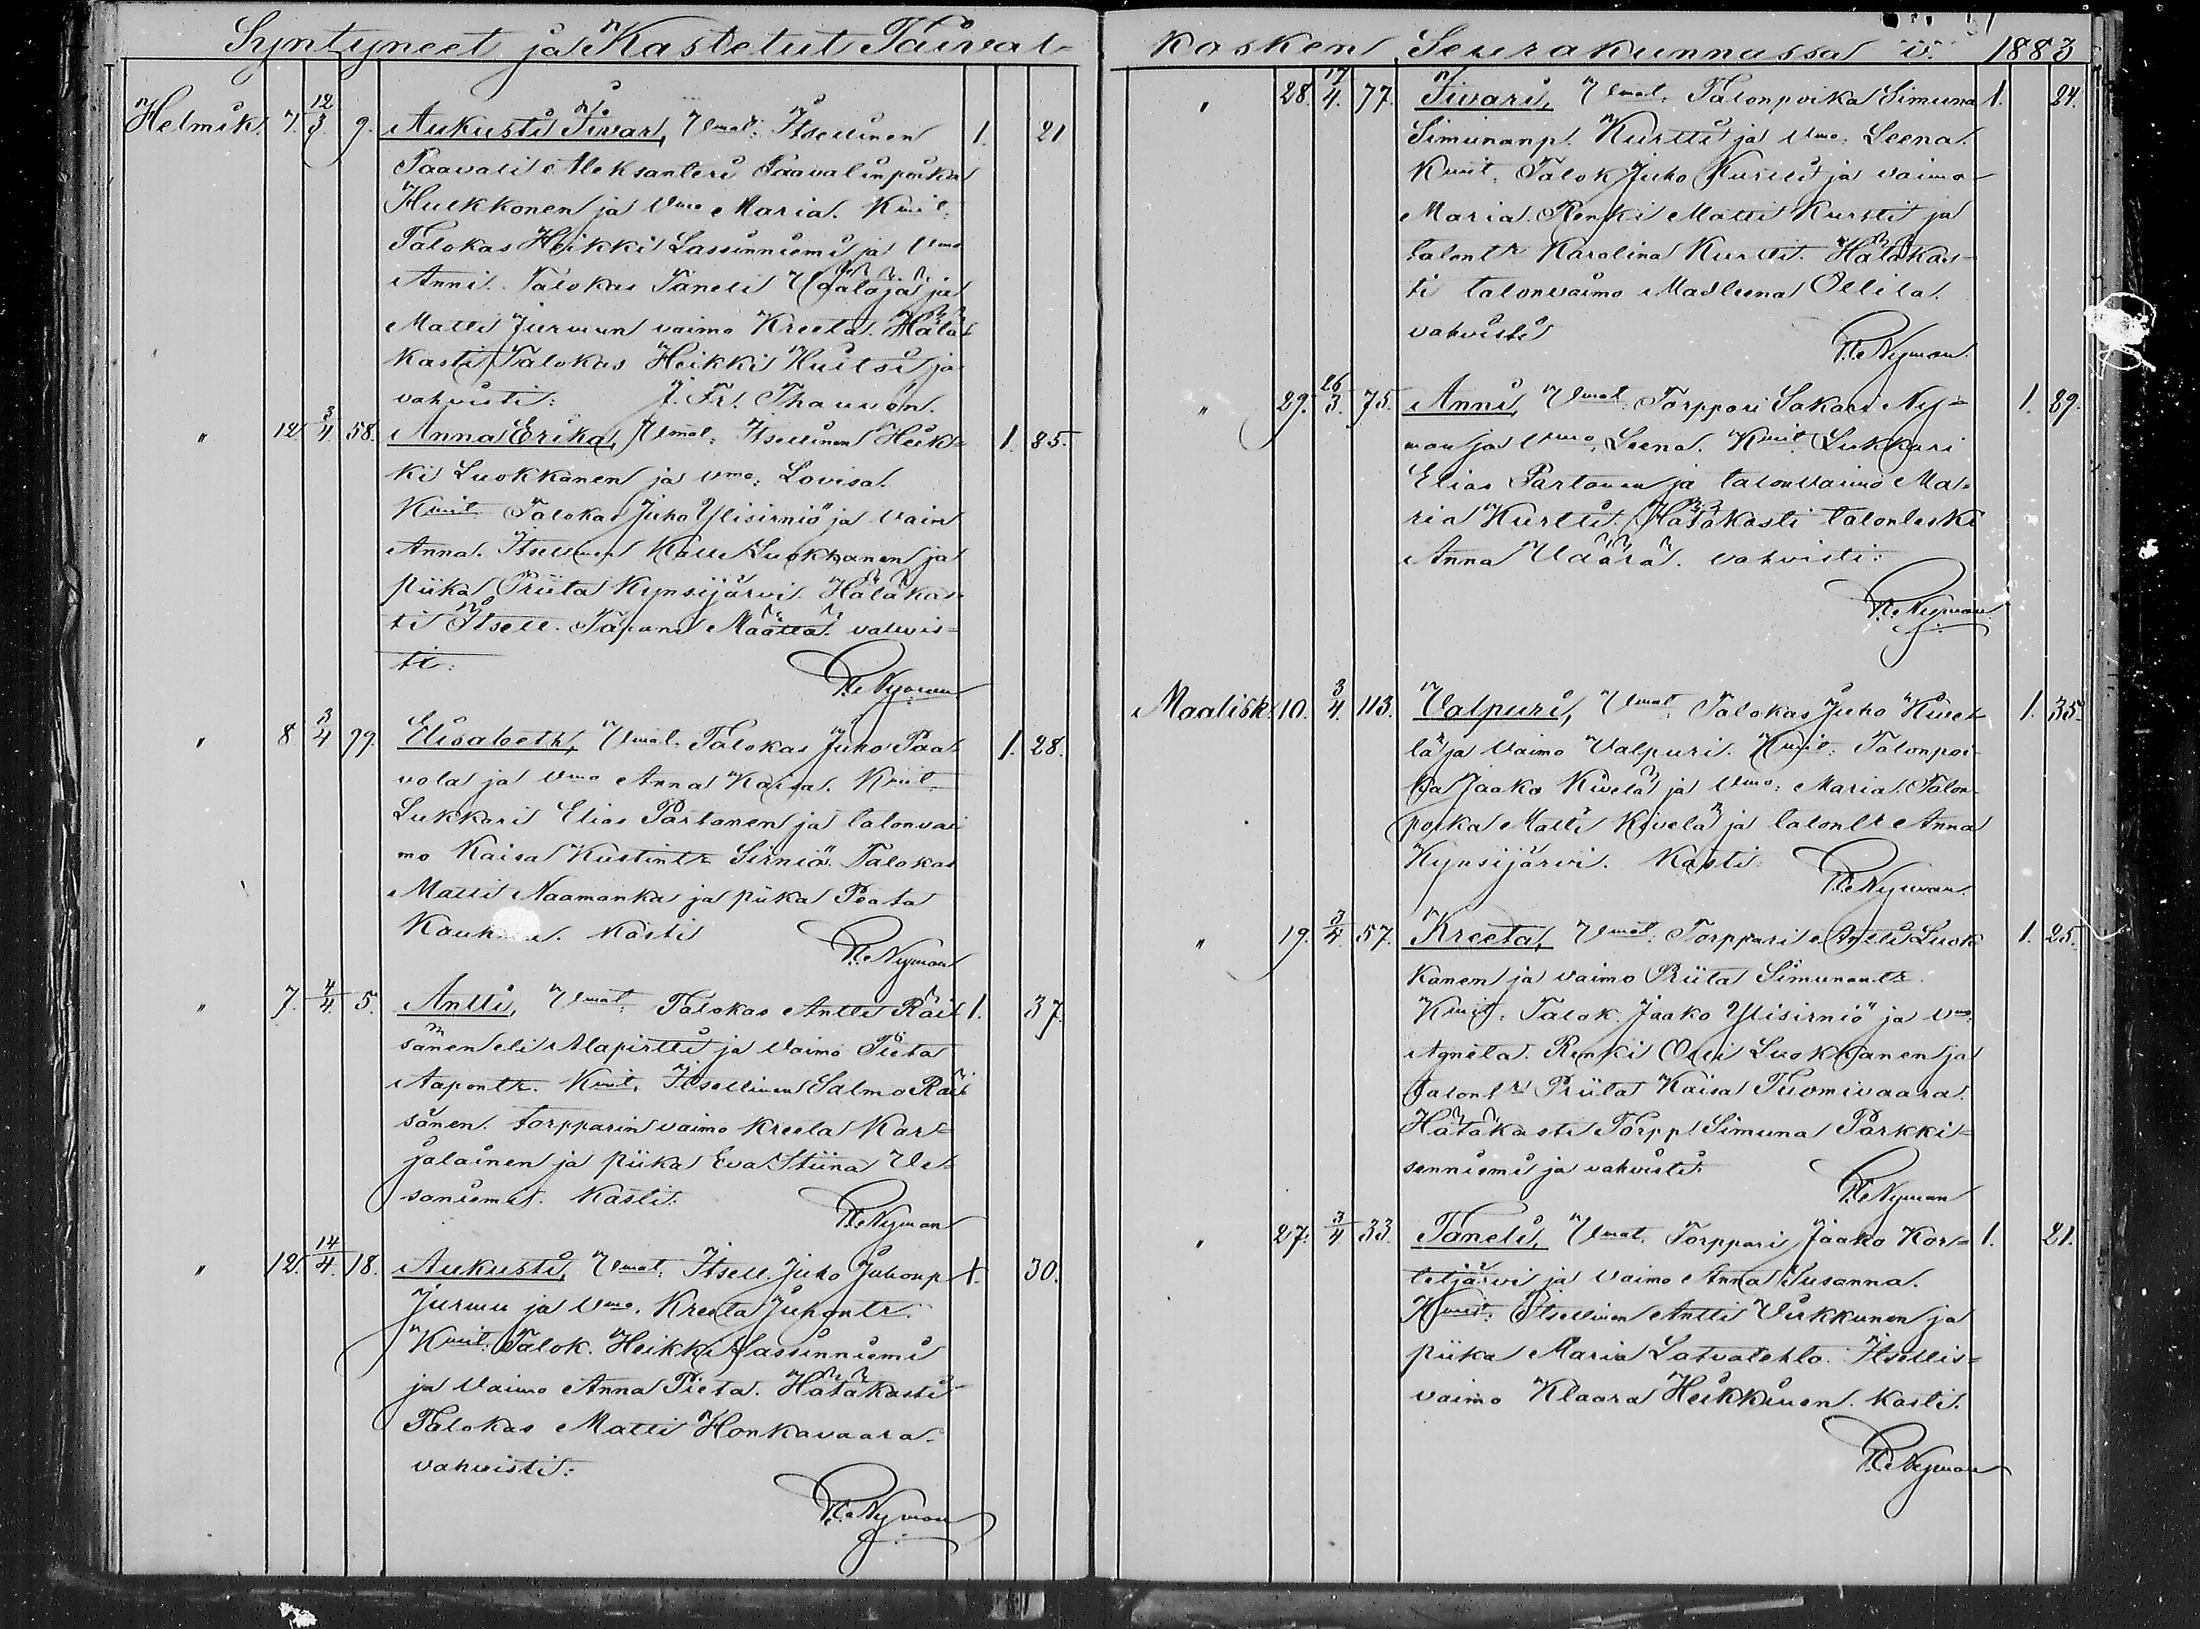 Syntyneet ja Kastetut Taival-
Helmik. 7. 12/3 9. Aukusti Iivar, Vmat. Itsellinen 1. 21
Paavali Aleksanteri Paavalinpoika
Hulkkonen ja Vmo Maria. Kmit.
Talokas Heikki Lassinniemi ja Vmo
Anni. Talokas Taneli Vaalaja ja
Matti Jurmun vaimo Kreeta. Hätä-
kasti Talokas Heikki Kuitsi ja
vahvisti: J. Fr. Thauvón.
" 12. 3/4 58. Anna Erika, Vmat. Itsellinen Heik- 1. 25.
ki Luokkanen ja Vmo: Lovisa.
Kmit. Talokas Juho Ylisirniö ja Vaim
Anna. Itsellinen Kalle Luokkanen ja
piika Priita Kynsijärvi. Hätäkas-
ti Itsell. Tapani Määttä. vahvis-
ti: Nyman
" 8 3/4 79. Elisabeth, Vmat. Talokas Juho Paa- 1. 28.
vola ja Vmo Anna Kaisa. Kmit.
Lukkari Elias Partanen ja talonvai
mo Kaisa Kustintr. Sirniö. Talokas
Matti Naamanka ja piika Peata
Kasti Nyman
" 7. 4/4 5. Antti, Vmat. Talokas Antti Räi- 1. 37.
sänen eli Alapirtti ja Vaimo Pieta
Aapontr. Kmit. Itsellinen Salmo Räi-
sänen. torpparin vaimo Kreeta Kar-
jalainen ja piika Eva Stiina Ve-
saniemi. Kasti. Nyman
" 12. 14/4. 18. Aukusti, Vmat. Itsell. Juho Juhonp. 1. 30.
Jurmu ja Vmo. Kreeta Juhontr.
Kmit. Talok. Heikki Lassinniemi
ja Vaimo Anna Pieta. Hätäkasti
Talokas Matti Honkavaara.
vahvisti:
Nyman
kosken Seurakunnassa v. 1883
" 28. 17/4. 77. Iivari, Vmat. Talonpoika Simuna 1. 24.
Simunanp. Kurtti ja Vmo. Leena.
Kmit. Talok Juho Kurtti ja vaimo
Maria. Renki Matti Kurtti ja
talontr Karolina Kurtti. Hätäkas-
ti talonvaimo Madleena Ollila.
vahvisti
Nyman.
" 29. 26/3. 75. Anni, Vmat. Torppari Sakari Ny- 1. 29.
man ja Vmo. Leena. Kmit. Lukkari
Elias Partanen ja talonvaimo Ma-
ria Kurtti. Hätäkasti talonleski
Anna Väärä. vahvisti:
Nyman
Maalisk. 10. 3/4. 113. Valpuri, Vmat. Talokas Juho Kive- 1. 35.
lä ja Vaimo Valpuri. Kmit. Talonpoi-
ka Jaako Kivelä ja Vmo: Maria. Talon-
poika Matti Kivelä ja talontr Anna
Kynsijärvi. Kasti. Nyman.
" 19. 3/4. 57. Kreeta, Vmat. Torppari Antti Luok 1. 25.
kanen ja vaimo Priita Simunantr.
Kmit. Talok. Jaako Ylisirniö ja Vmo
Agneta. Renki Olli Luokkanen ja
talontr Priita Kaisa Tuomivaara.
Hätäkasti Torpp. Simuna Parkki-
senniemi ja vahvisti
Nyman
" 27. 3/4 33. Taneli, Vmat. Torppari Jaako Kor- 1. 21.
teljärvi ja Vaimo Anna Susanna.
Kmit. Itsellinen Antti Virkkunen ja
piika Maria Latvalehto. Itsellis-
vaimo Klaara Heikkinen. Kasti.
Nyman